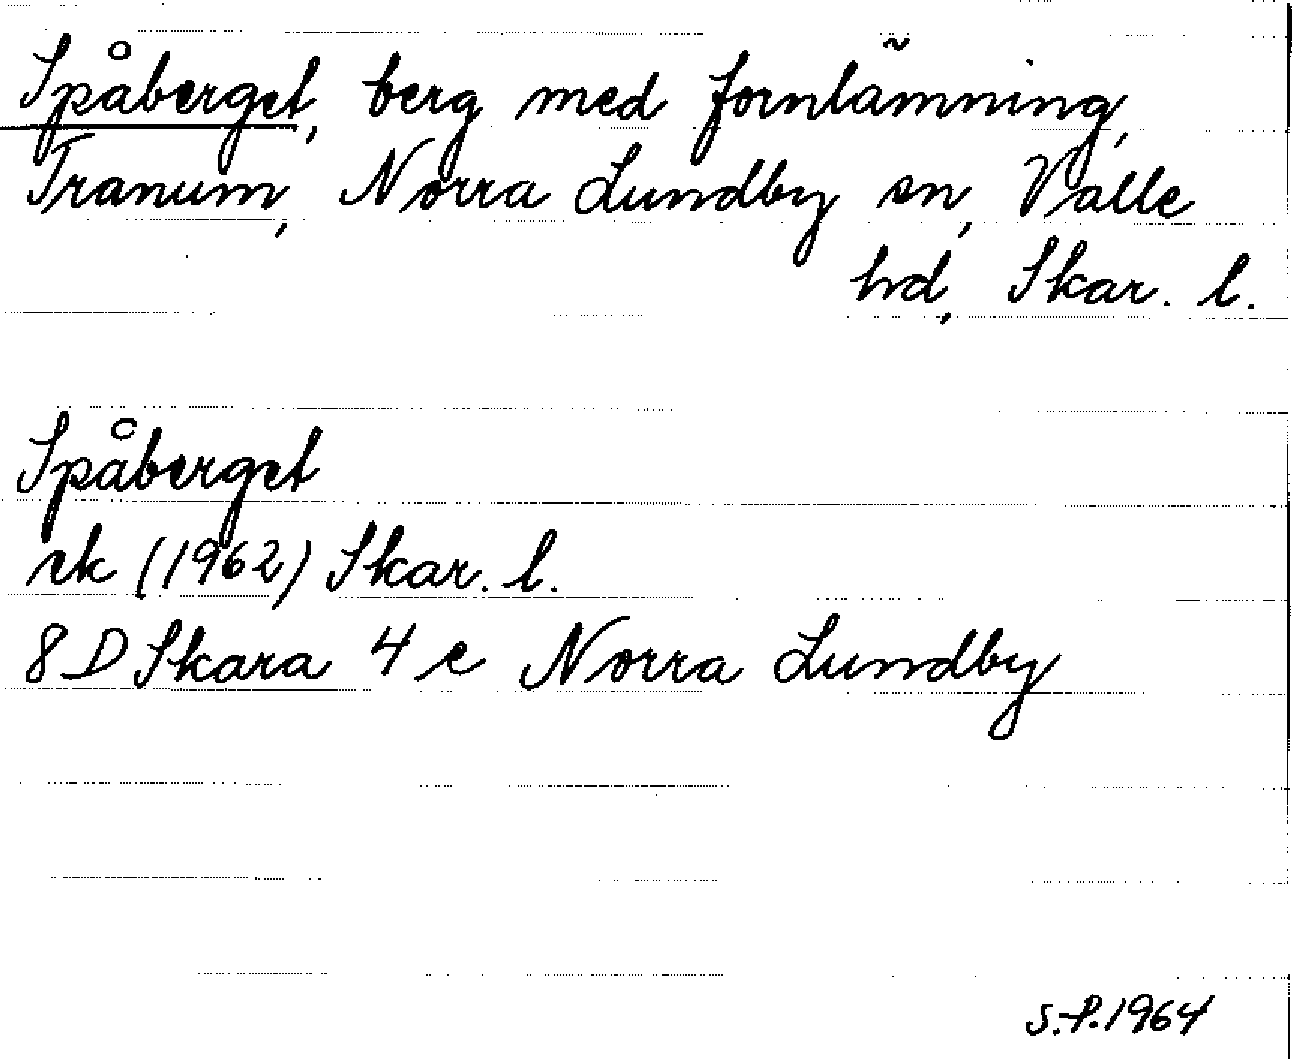 Spåberget, berg med fornlämning,
Tranum, Norra Lundby sn, Valle
hd, Skar. l.
Spåberget
ek (1962) Skar. l.
8 D Skara 4 e Norra Lundby
S.P. 1964